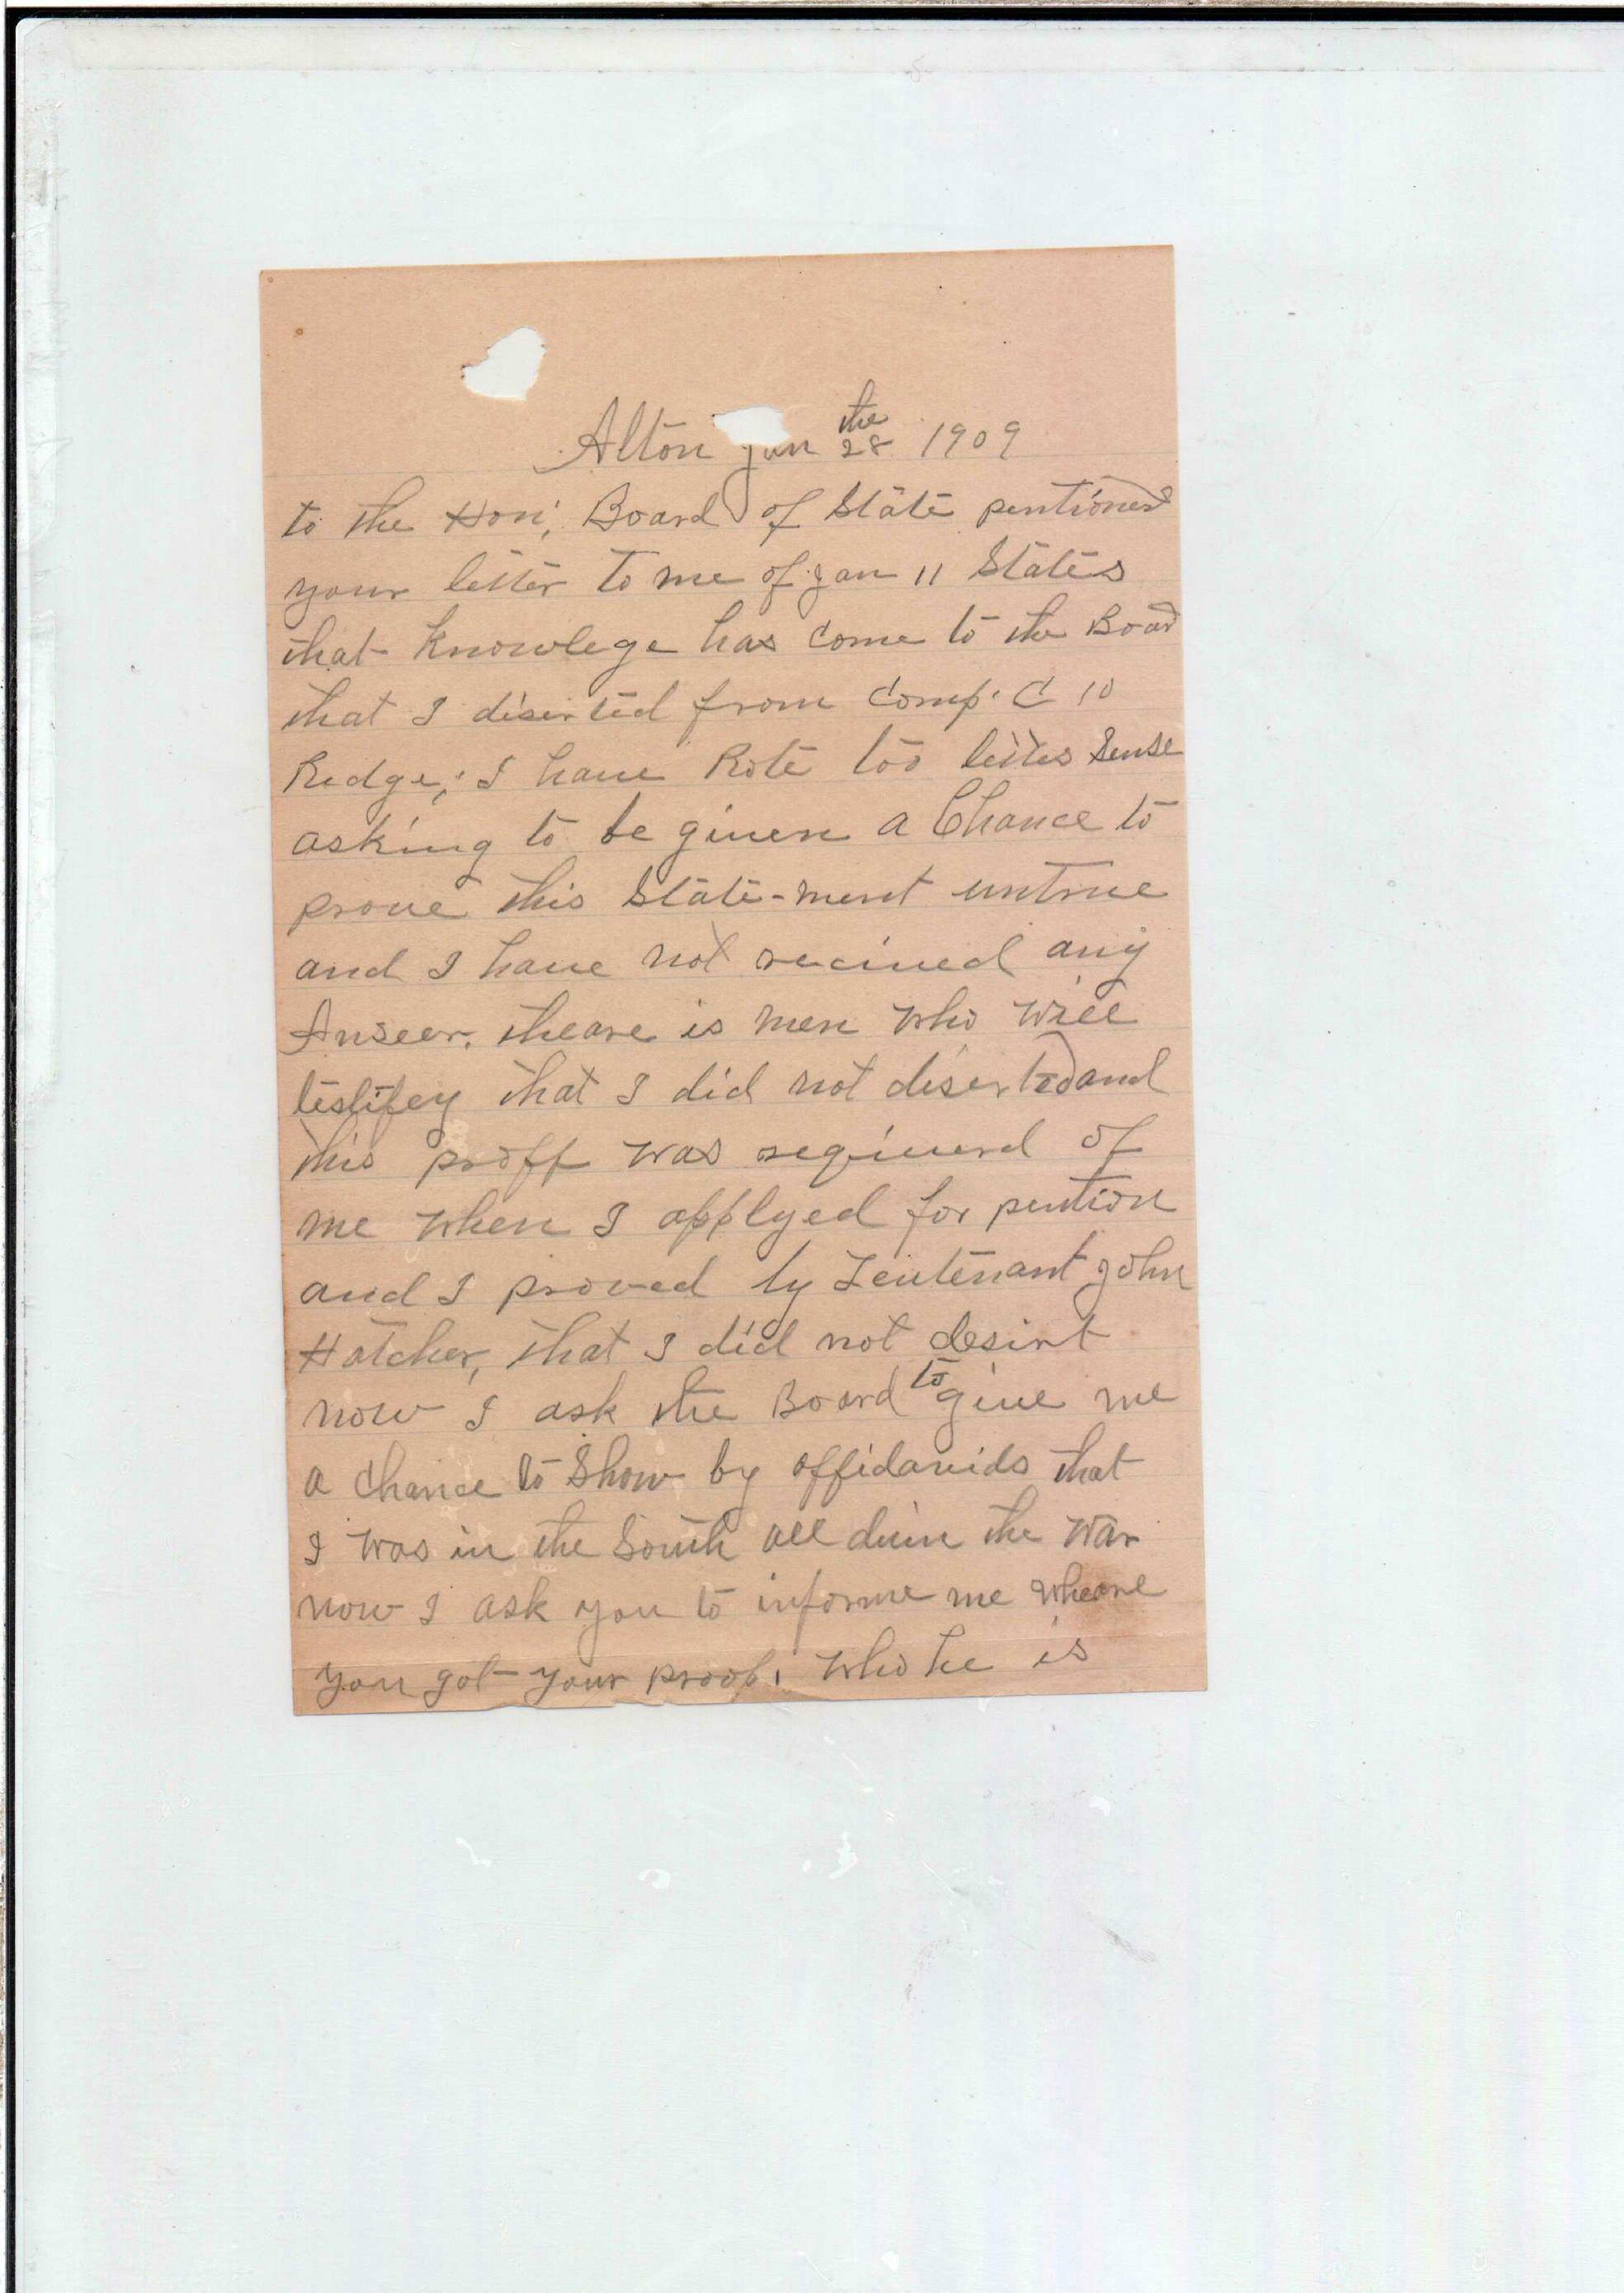 Alton Jan the 28 1909
to the Hon', Board of State pentioners
your letter to me of Jan 11 States
that knowlege has come to the Board
that I diserted from Comp. C 10
Redge; I have Rote too letters Sense
asking to be given a Chance to
prove this State-ment untrue
and I have not recived any
Anseer. theare is men who will
testifey that I did not diserted and
this proff was requierd of
me when I applyed for pention
and I proved by Leutenant John
Hatcher, that I did not desirt
now I ask the Board to give me
a chance to Show by affidavids that
I was in the South all duin the war
now I ask you to informe me wheare
you got your proof. who he is